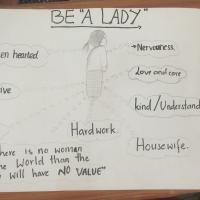 BE "A LADY"
en hearted.
→ Nervousness.
Love and care
ive
kind/Understand
Hard work.
Housewife.
here is no woman
e World than the
will have NO VALUE"